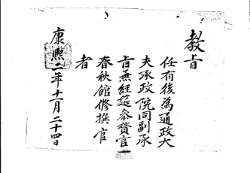 教旨
任有後爲通政大
夫承政院同副承
旨兼經筵參賛官
春秋館修撰官
者
康熙二年十一月二十四日